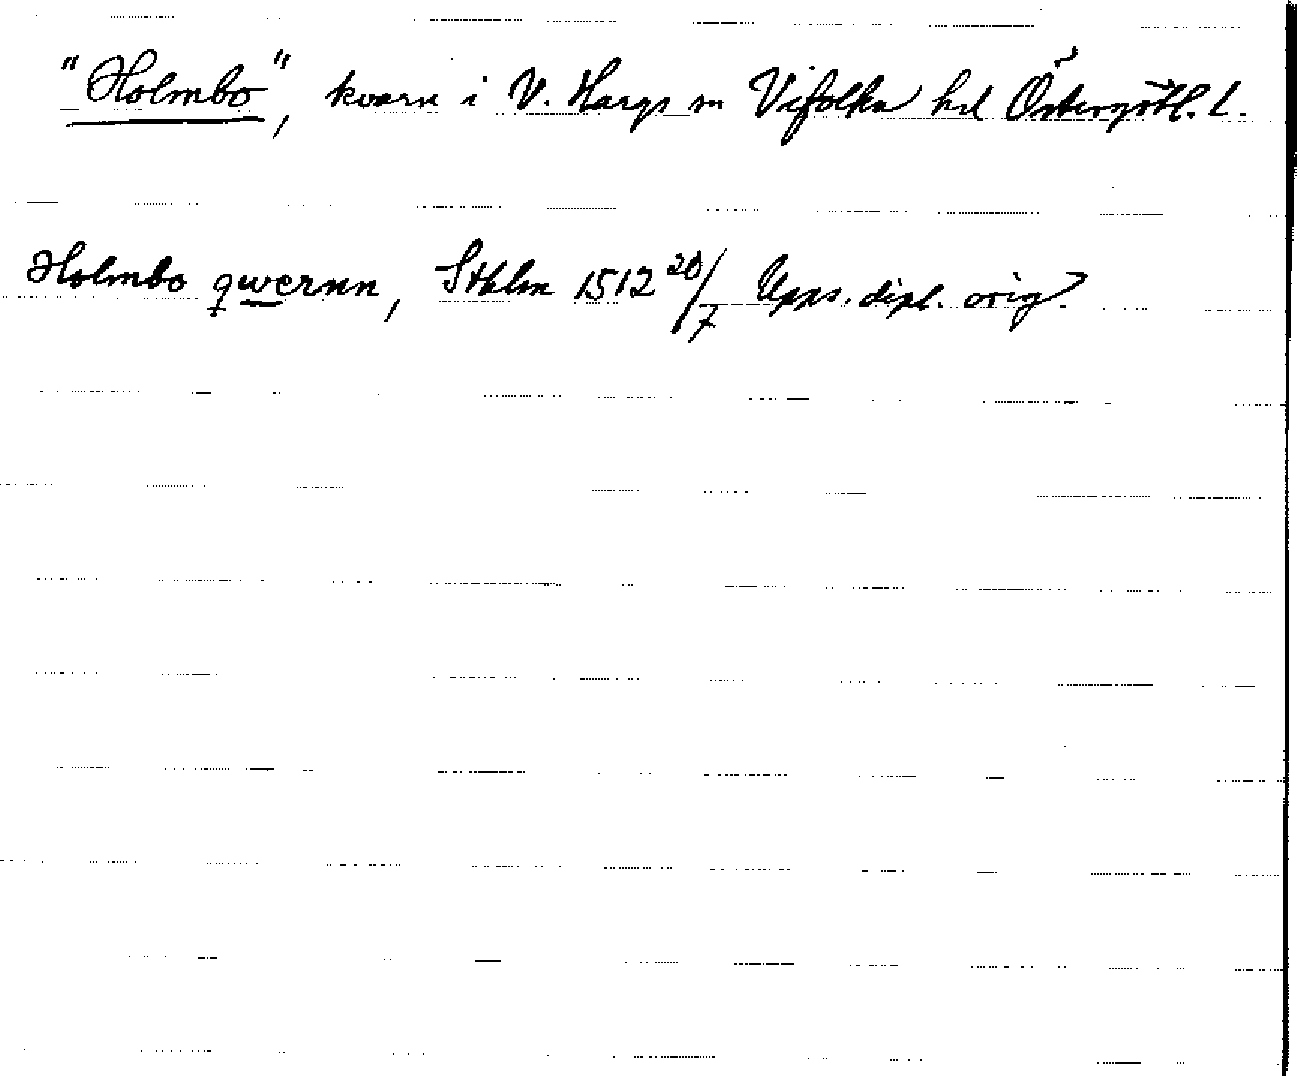 "Holmbo", kvarn i V. Hargs sn Vifolka hd Östergötl. l.
Holmbo qwernn, Sthlm 1512 20/7 Upps. dipl. orig.